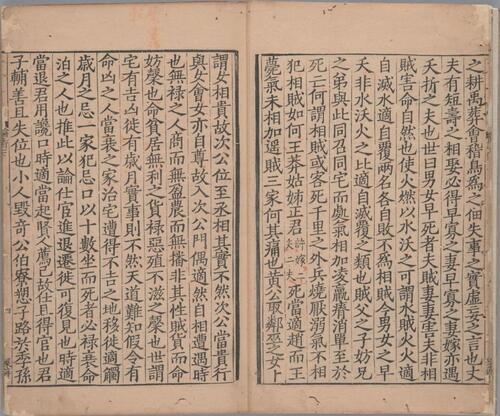 之耕禹葬會稽鳥爲之佃失事之實虛妄之言也丈
夫有短壽之相娶必得早寡之妻早寡之妻嫁亦遇
夭折之夫也世曰男女早死者夫賊妻妻害夫非相
賊害命自然也使火燃以水沃之可謂水賊火火適
自滅水適自覆兩名各自敗不爲相賊今男女之早
夭非水沃火之比適自滅覆之類也賊父之子妨兄
之弟與此同召同宅而處氣相加凌羸瘠消單至於
死亡何謂相賊或客死千里之外兵燒厭溺氣不相
犯相賊如何王莽姑姊正君許嫁二夫二夫死當適趙而王
薨氣未相加遥賊三家何其痛也黄公取鄰巫之女卜
謂女相貴故次公位至丞相其實不然次公當貴行
與女會女亦自尊故入次公門偶適然自相遭遇時
也無禄之人商而無盈農而無播非其性賊貨而命
妨槼也命貧居無利之貨禄惡殖不滋之槼也世謂
宅有吉凶徙有歳月實事則不然天道難知假令有
命凶之人當衰之家治宅遭得不吉之地移徙適觸
歳月之忌一家犯忌口以十數坐而死者必禄衰命
泊之人也推此以論仕宦進退遷徙可復見也時適
當退君用讒口時適當起賢人薦己故仕且得官也君
子輔善且失位也小人毁奇公伯寮愬子路於季孫